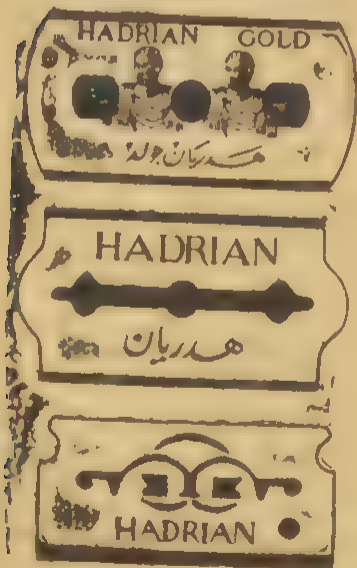 HADRIAN GOLD
هدريان جولد
HADRIAN
هدريان
HADRIAN